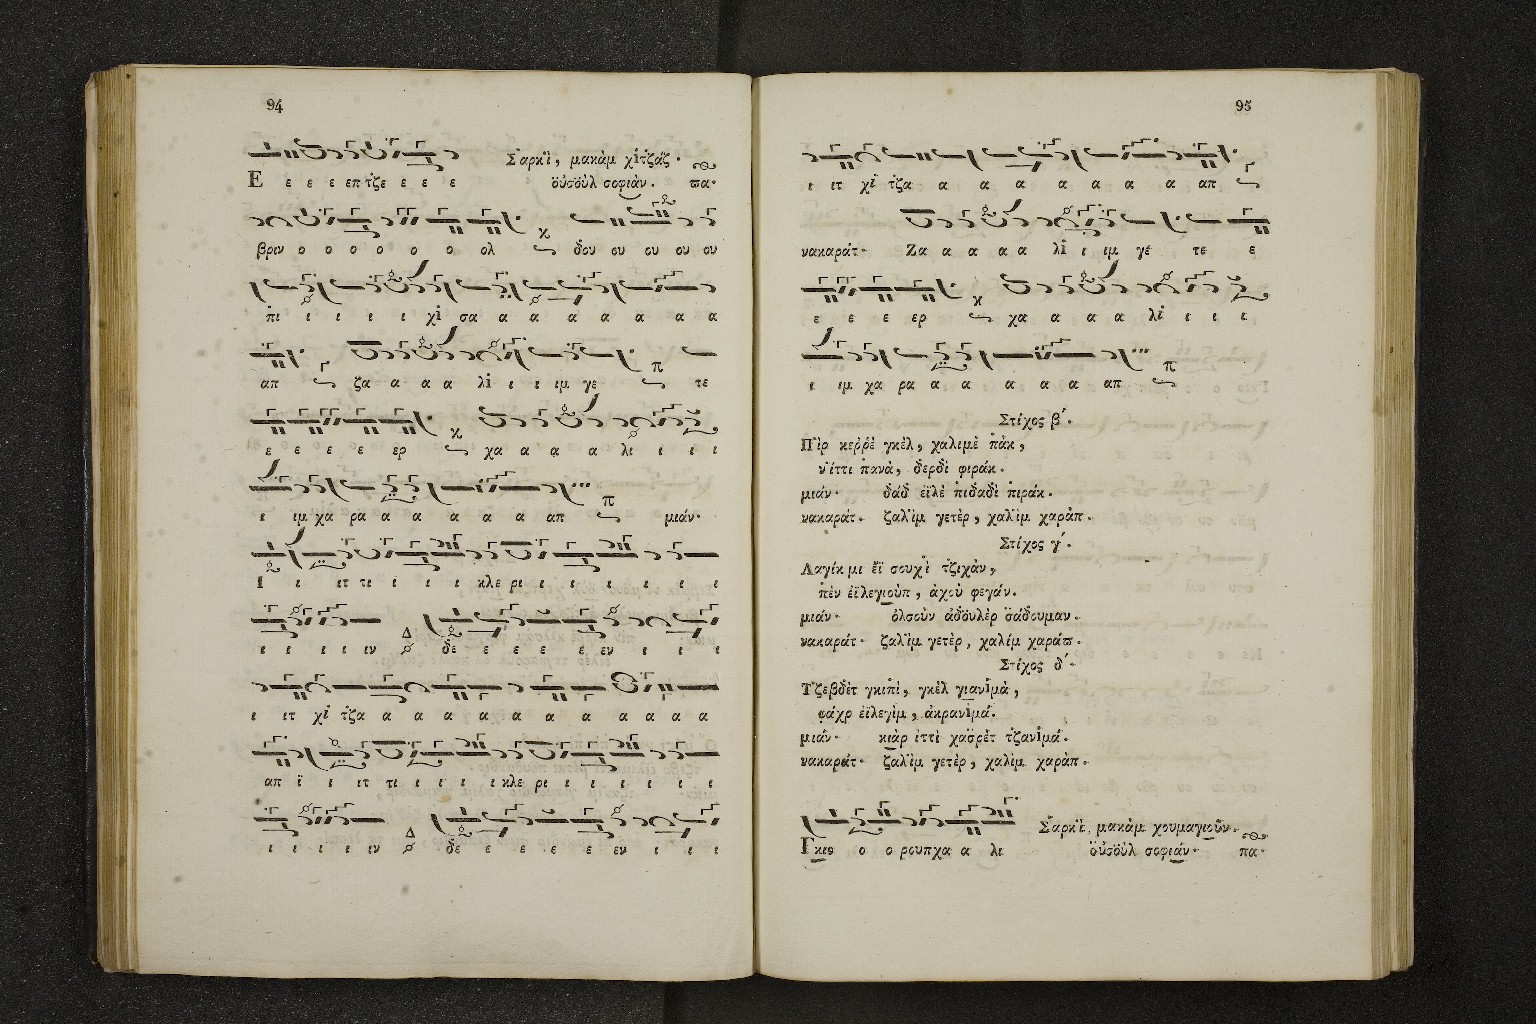 94
Σαρκὶ, μακὰμ χὶτζάζ.
Ε ε ε ε επ τζε ε ε ε οὐσοὺλ σοφιὰν. πα.
βριν ο ο ο ο ο ο ολ δου ου ου ου ου
πι ι ι ι ι χὶ σα α α α α α α α
απ ζα α α α λὶ ι ι ιμ γε τε
ε ε ε ε ερ χα α α α λι ι ι ι
ι ιμ χα ρα α α α α α απ μιάν.
Ι ι ιτ τι ι ι ι κλε ρι ι ι ι ι ι ι
ι ι ι ι ιν δε ε ε ε ε εν ι ι ι
ι ιτ χὶ τζα α α α α α α α α α α α
απ ϊ ι ιτ τι ι ι ι ι κλε ρι ι ι ι ι ι ι
ι ι ι ι ιν δε ε ε ε ε εν ι ι ι
95
ι ιτ χὶ τζα α α α α α α α απ
νακαράτ. Ζα α α α α λὶ ι ιμ γέ τε ε
ε ε ε ερ χα α α α λὶ ι ι ι
ι ιμ χα ρα α α α α α απ
Στίχος β΄.
Πὶρ κερρὲ γκὲλ, χαλιμὲ πὰκ,
νέττι πανὰ, δερδὶ φιράκ.
μιάν. δάδ εϊλὲ πιδαδὶ πιράκ.
νακαράτ. ζαλὶμ γετὲρ, χαλὶμ χαράπ.
Στίχος γ΄.
Λαγίκ μι ἒϊ σουχὶ τζιχὰν,
πὲν εϊλεγιοὺπ, ἀχοὺ φεγάν.
μιάν. ὀλσοὺν ἀδδουλὲρ σάδουμαν.
νακαράτ. ζαλὶμ γετὲρ, χαλίμ χαράπ.
Στίχος δ΄.
Τζεβδὲτ γκιπὶ, γκὲλ γιανὶμὰ,
φάχρ εϊλεγὶμ, ἀκρανὶμά.
μιάν. κιὰρ ἐττὶ χασρὲτ τζανὶμά.
νακαράτ. ζαλὶμ γετὲρ, χαλὶμ χαράπ.
Σαρκὶ, μακὰμ χουμαγιοῦν.
Γκιο ο ο ρουπχα α λι οὐσοὺλ σοφιάν. πα.